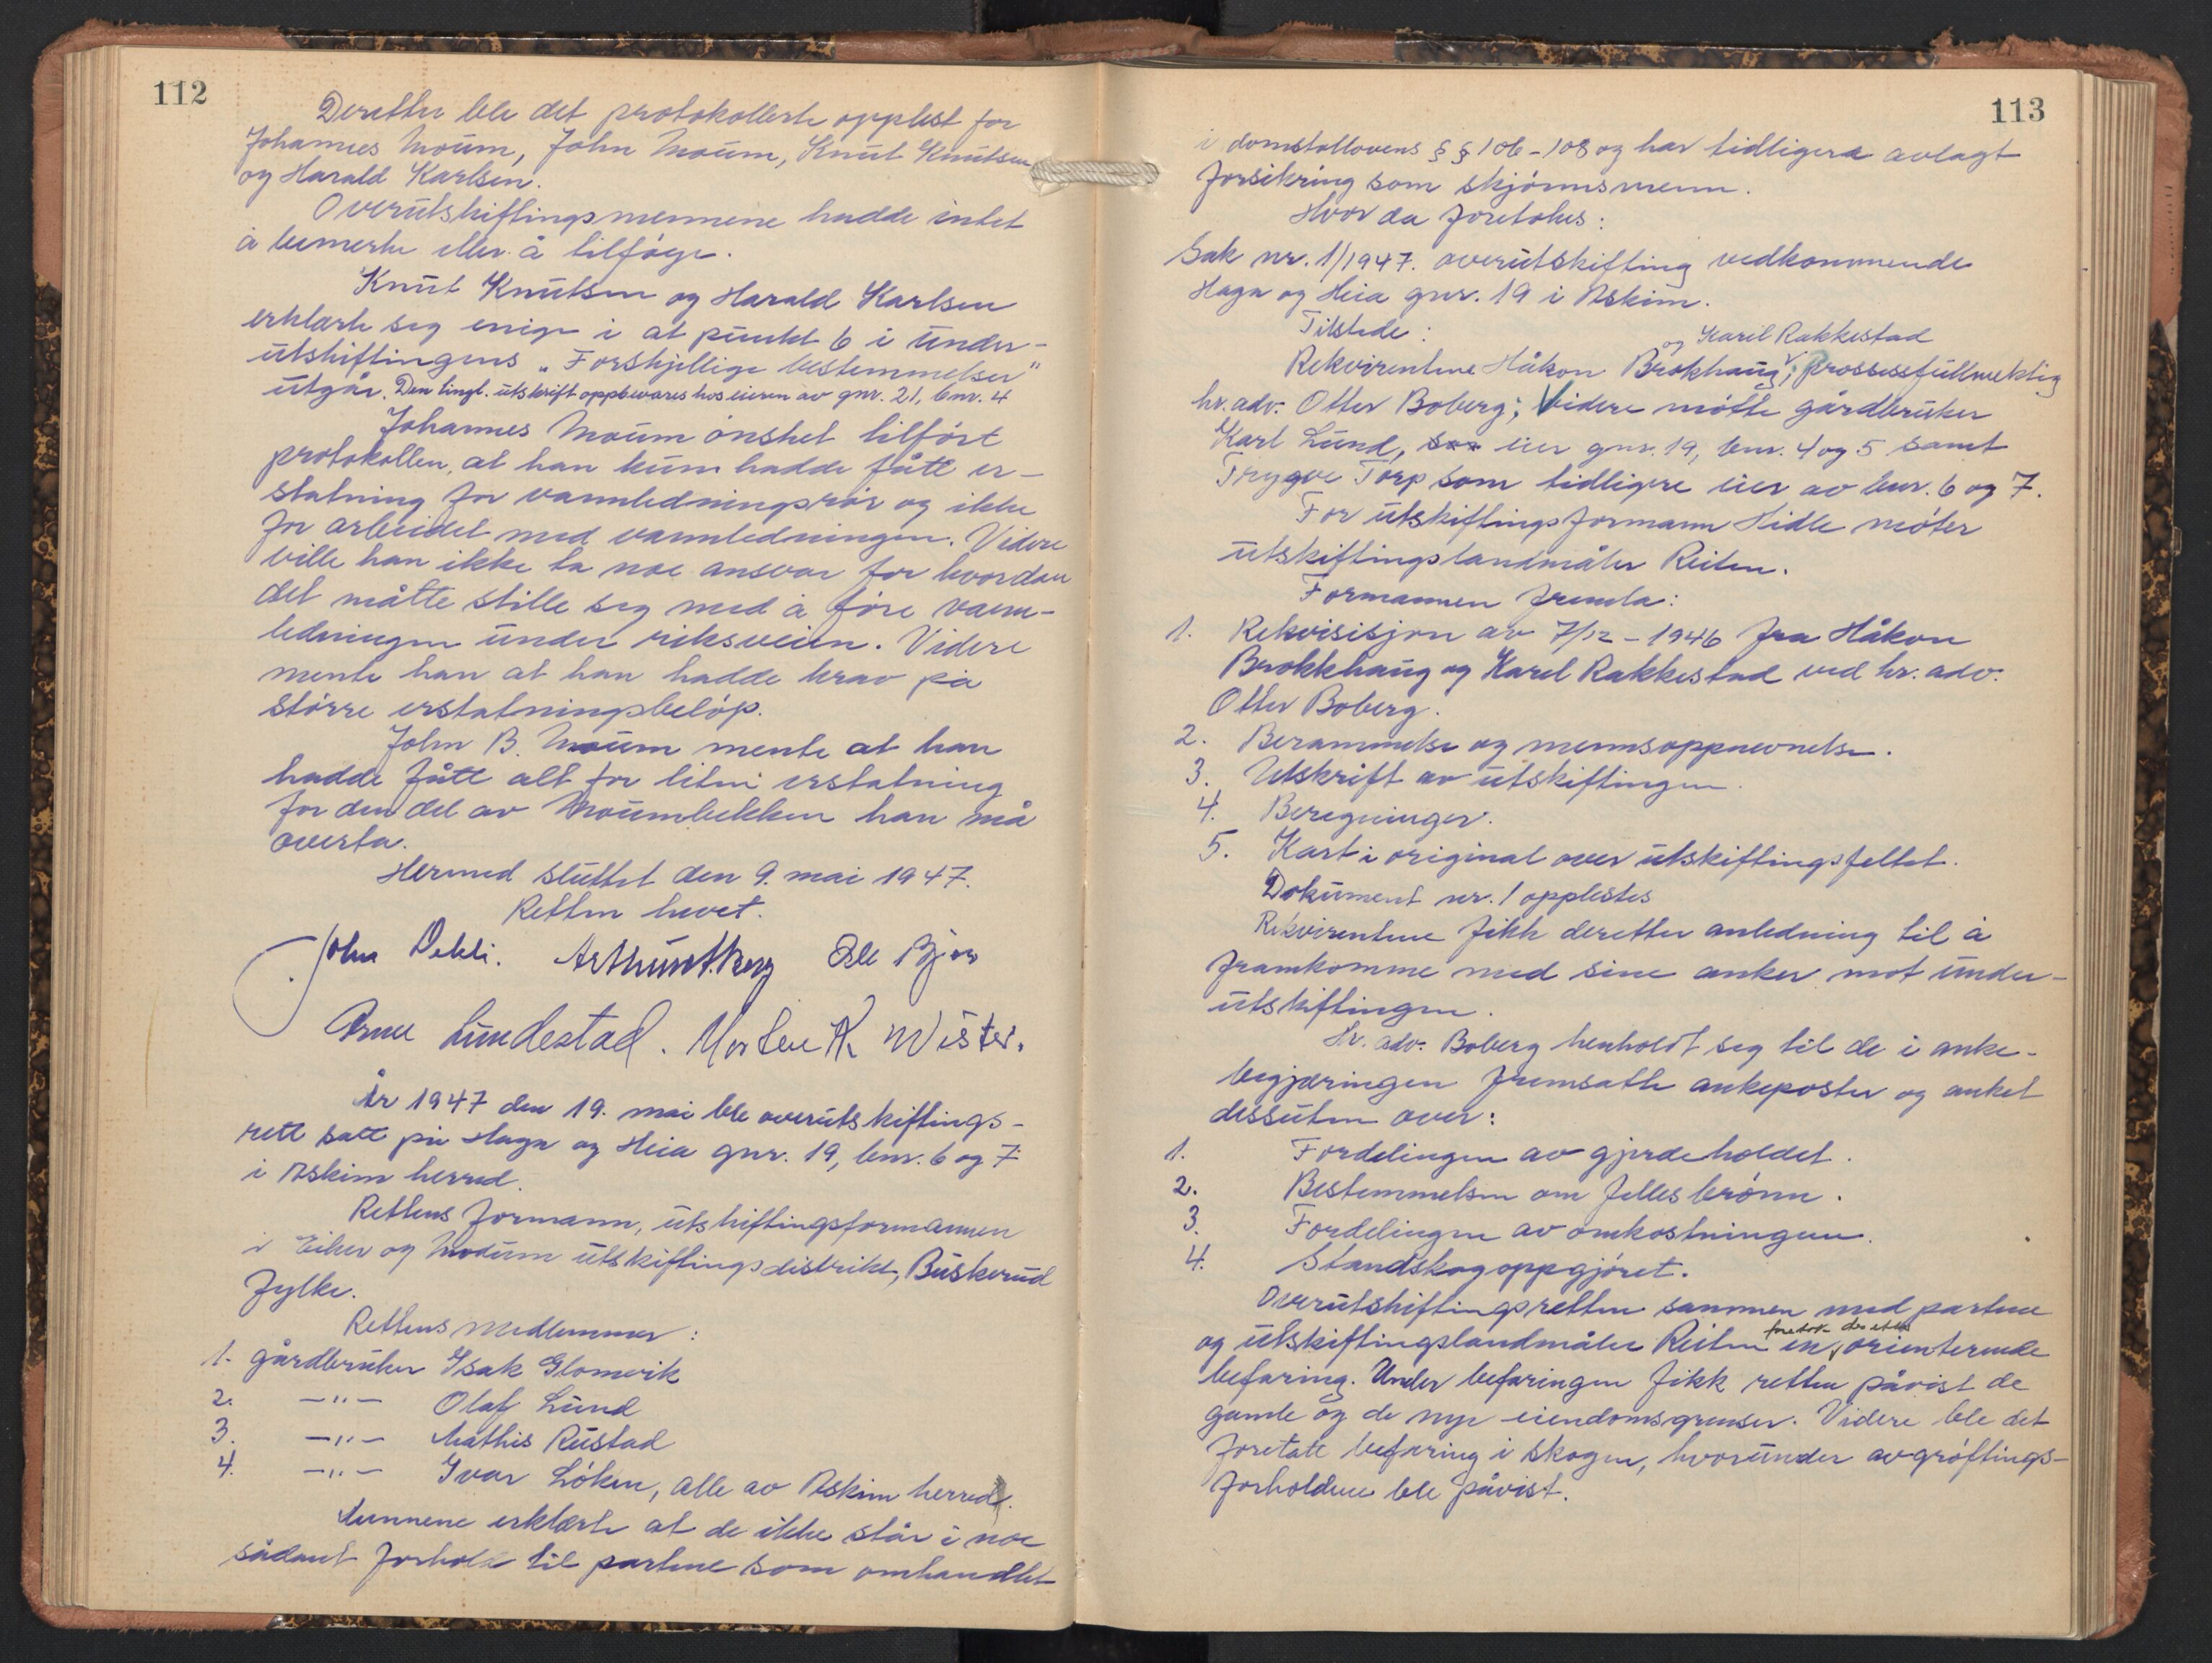 112
Deretter ble det protokollerte opplest for
Johannes Moum, John Moum, Knut Knutsen
og Harald Karlsen.
Overutskiftingsmennene hadde intet
å bemerke eller å tilføye.
Knut Knutsen og Harald Karlsen
erklærte seg enige i at punkt 6 i under-
utskiftingens „Forskjellige bestemmelser"
utgår. Den tingl. utskrift oppbevares hos eieren av gnr. 21, bnr. 4
Johannes Moum ønsket tilført
protokollen, at han kun hadde fått er-
statning for vannledningsrør og ikke
for arbeidet med vannledningen. Videre
ville han ikke ta noe ansvar for hvordan
det måtte stille seg med å føre vann-
ledningen under riksveien. Videre
mente han at han hadde krav på
større erstatningsbeløp.
John B. Moum mente at han
hadde fått alt for liten erstatning
for den del av Moumbekken han må
overta.
Hermed sluttet den 9. mai 1947.
Retten hevet.
John Dehli. Arthur Berg Ole Bjor
Arne Lundestad. Morten K. Wister.
År 1947 den 19. mai ble overutskiftings-
rett satt på Haga og Heia gnr. 19, bnr. 6 og 7
i Askim herred.
Rettens formann, utskiftingsformannen
i Eiker og Modum utskiftingsdistrikt, Buskerud
fylke.
Rettens medlemmer:
1. gårdbruker Isak Glomvik
2. —"— Olaf Lund
3. —"— Mathis Rustad
4. —"— Ivar Løken, alle av Askim herred.
Mennene erklærte at de ikke står i noe
sådant forhold til partene som omhandlet
113
i domstollovens §§ 106-108 og har tidligere avlagt
forsikring som skjønnsmenn.
Hvor da foretokes:
Sak nr. 1/1947. overutskifting vedkommende
Haga og Heia gnr. 19 i Askim.
Tilstede:
og Karel Rakkestad
Rekvirentene Håkon Brokhaug, prossessfullmektig
hr. adv. Otter Boberg; Videre møtte gårdbruker
Karl Lund, eier gnr. 19, bnr. 4 og 5 samt
Trygve Torp som tidligere eier av bnr. 6 og 7.
For utskiftingsformann Hidle møter
utskiftingslandmåler Reiten.
Formannen fremla:
1. Rekvisisjon av 7/12-1946 fra Håkon
Brokkhaug og Karel Rakkestad ved hr. adv.
Otter Boberg.
2. Berammelse og mennsoppnevnelse.
3. Utskrift av utskiftingen.
4. Beregninger.
5. Kart i original over utskiftingsfeltet.
Dokument nr. 1 opplestes
Rekvirentene fikk deretter anledning til å
framkomme med sine anker mot under-
utskiftingen.
Hr. adv. Boberg henholdt seg til de i anke-
begjæringen fremsatte ankeposter og anket
dessuten over:
1. Fordelingen av gjerdeholdet.
2. Bestemmelsen om fellesbrønn.
3. Fordelingen av omkostningene.
4. Standskogoppgjøret.
Overutskiftingsretten sammen med partene
foretok deretter
og utskiftingslandmåler Reiten en orienterende
befaring. Under befaringen fikk retten påvist de
gamle og de nye eiendomsgrenser. Videre ble det
foretatt befaring i skogen, hvorunder avgrøftings-
forholdene ble påvist.